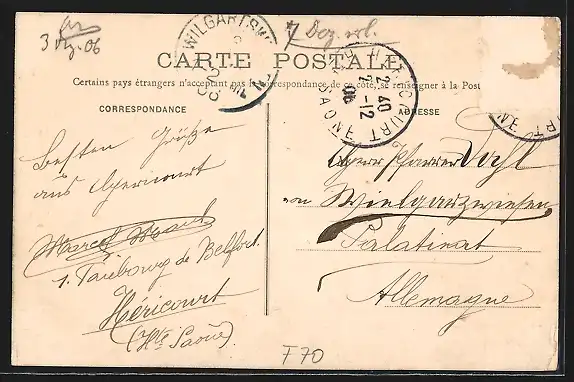 3 Dz. 06
7 Dez. vol.
WILGARTSWI
CARTE POSTALE
Certains pays étrangers n'acceptant pas la correspondance de ce côté, se renseigner à la Post
CORRESPONDANCE
ADRESSE
HERICOURT
2 40
7 -12
06
SAONE
Besten Grüße
aus Hericourt
Marcel
1. Faubourg de Belfort.
Héricourt
(Hte Saône)
Herrn Pfarrer Vahl
von Wielgarzwiesen
Palatinat
Allemagne
F70